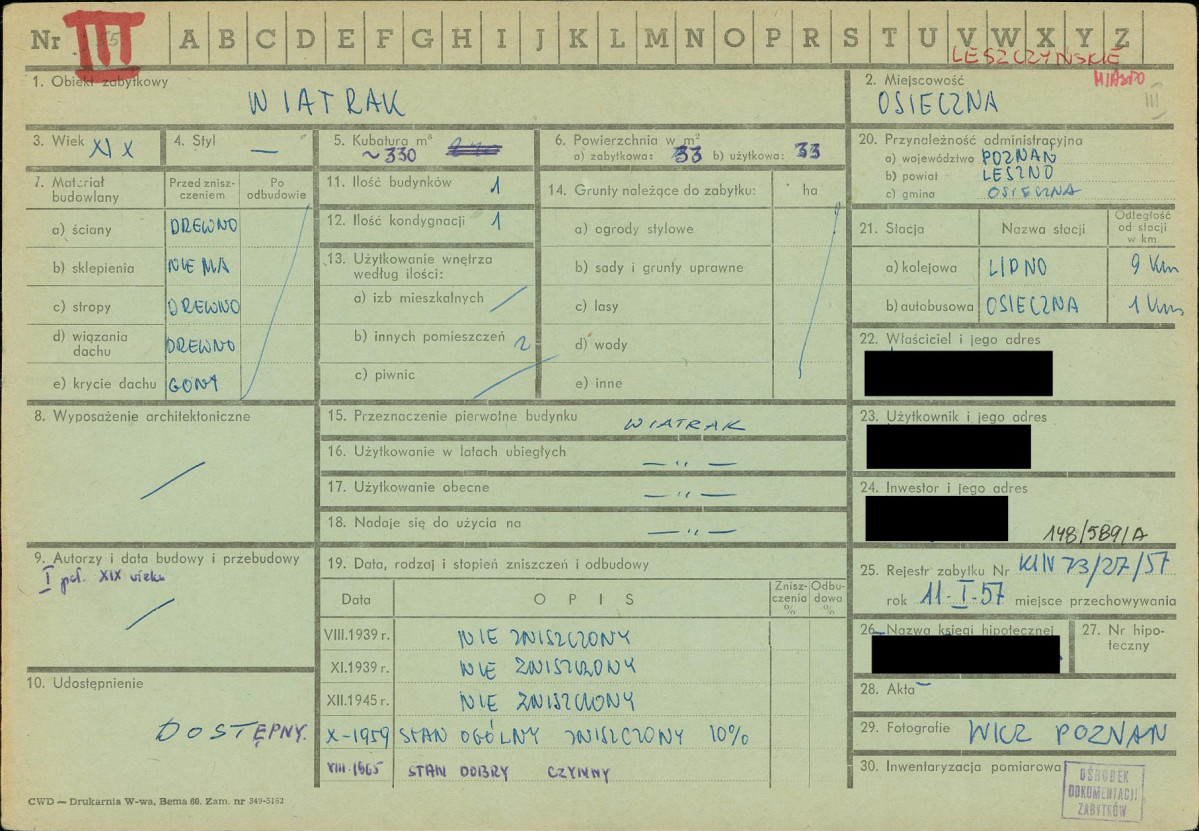 Nr III A B C D E F G H I J K L M N O P R S T U V W X Y Z
LESZCZYŃSKIE
MIASTO
1. Obiekt zabytkowy
WIATRAK
2. Miejscowość
OSIECZNA
III
3. Wiek XIX
4. Styl —
5. Kubatura m³
~330
6. Powierzchnia w m²
a) zabytkowa: 33 b) użytkowa: 33
7. Materiał budowlany
Przed znisz-
czeniem
Po
odbudowie
a) ściany DREWNO
b) sklepienia NIE MA
c) stropy DREWNO
d) wiązania
dachu DREWNO
e) krycie dachu GONT
8. Wyposażenie architektoniczne
9. Autorzy i data budowy i przebudowy
I poł. XIX wieku
10. Udostępnienie
DOSTĘPNY.
11. Ilość budynków 1
12. Ilość kondygnacji 1
13. Użytkowanie wnętrza
według ilości:
a) izb mieszkalnych
b) innych pomieszczeń 2
c) piwnic
14. Grunty należące do zabytku: ha
a) ogrody stylowe
b) sady i grunty uprawne
c) lasy
d) wody
e) inne
15. Przeznaczenie pierwotne budynku WIATRAK
16. Użytkowanie w latach ubiegłych — „ —
17. Użytkowanie obecne — „ —
18. Nadaje się do użycia na — „ —
19. Data, rodzaj i stopień zniszczeń i odbudowy
Data
OPIS
Znisz-
czenia
%
Odbu-
dowa
%
VIII.1939 r. NIE ZNISZCZONY
XI.1939 r. NIE ZNISZCZONY
XII.1945 r. NIE ZNISZCZONY
X-1959 STAN OGÓLNY ZNISZCZONY 10%
VIII-1965 STAN DOBRY CZYNNY
20. Przynależność administracyjna
a) województwo POZNAŃ
b) powiat LESZNO
c) gmina OSIECZNA
21. Stacja
Nazwa stacji
Odległość
od stacji
w km
a) kolejowa LIPNO 9 Km
b) autobusowa OSIECZNA 1 Km
22. Właściciel i jego adres
23. Użytkownik i jego adres
24. Inwestor i jego adres
148/589/A
25. Rejestr zabytku Nr KLIV 73/27/57
rok 11-I-57 miejsce przechowywania
26. Nazwa księgi hipotecznej
27. Nr hipo-
teczny
28. Akta
29. Fotografie WKZ POZNAŃ
30. Inwentaryzacja pomiarowa
OŚRODEK
DOKUMENTACJI
ZABYTKÓW
CWD — Drukarnia W-wa, Bema 60. Zam. nr 349-5162